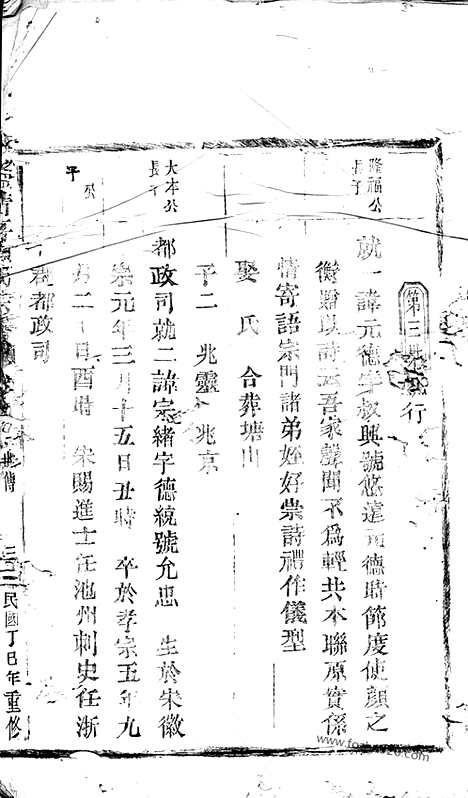 第三世 行
隆福公長子
就一諱元德字叔興號悠遠 德時節度使顔之
衡贈以詩云吾家聲聞不爲輕共本聯原實係
情寄語宗門諸弟姪好崇詩禮作儀型
娶 氏 合葬塘山
子二 兆靈 兆京
大本公長子
都政司就二諱宗緒字德統號允忠 生於宋徽
宗元年三月十五日丑時 卒於孝宗五年九
月二十日酉時 宋賜進士任池州刺史任浙
都政司
平 公
三二 民國丁巳年重修